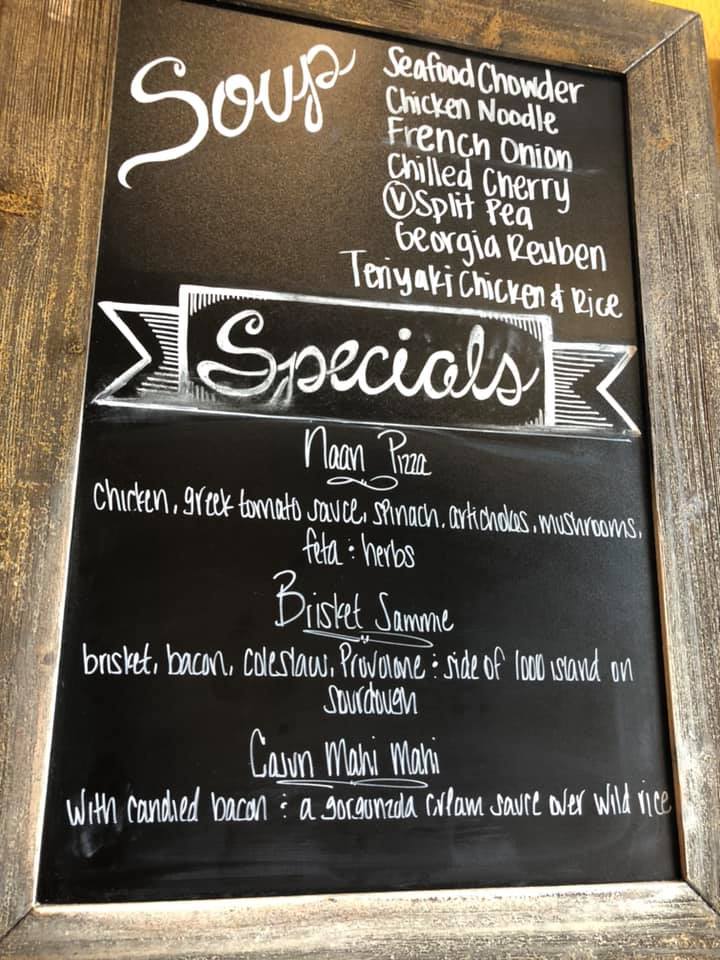 Soup
Seafood Chowder
Chicken Noodle
French Onion
Chilled Cherry
Ⓥ Split Pea
Georgia Reuben
Teriyaki Chicken & Rice
Specials
Naan Pizza
Chicken, greek tomato sauce, spinach, artichokes, mushrooms,
feta : herbs
Brisket Samme
brisket, bacon, coleslaw, Provolone : side of 1000 island on
Sourdough
Cajun Mahi Mahi
With candied bacon : a gorgonzola cream sauce over wild rice